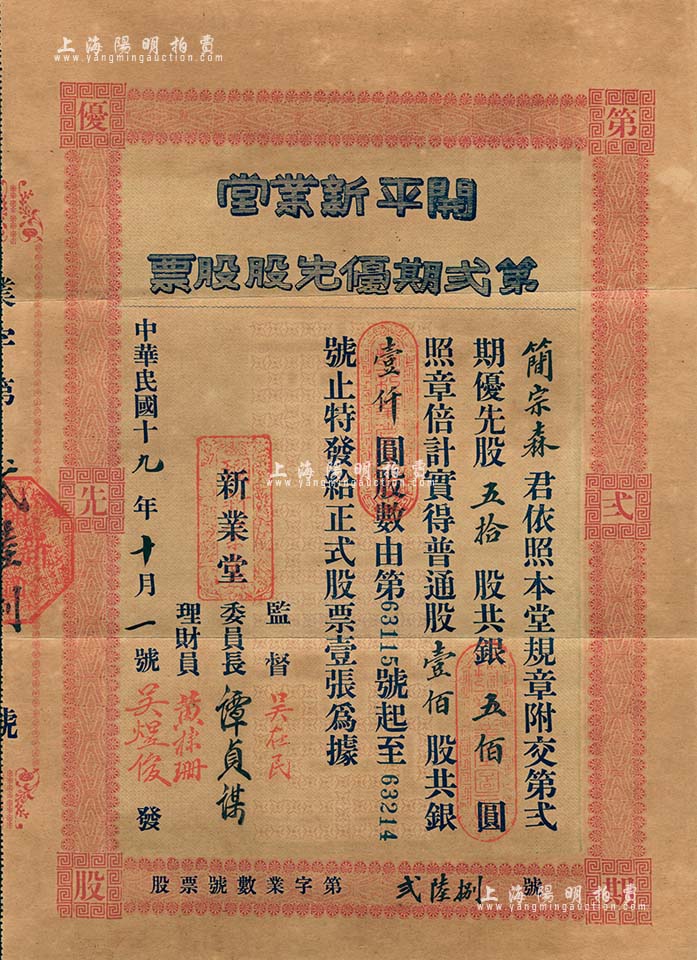 上海陽明拍賣
www.yangmingauction.com
開平新業堂
第弍期優先股股票
簡宗森君依照本堂規章附交第弍
期優先股五拾股共銀五佰圓
照章倍計實得普通股壹佰股共銀
壹仟圓股數由第63115號起至63214
號止特發給正式股票壹張爲據
新業堂
監督 吳在民
委員長 譚貞謀
理財員
吳煜俊
中華民國十九年十月一號發
股票號數業字第弍陸捌號
第弍期
優先股
業字第弍陸捌號
上海陽明拍賣
www.yangmingauction.com
上海陽明拍賣
www.yangmingauction.com